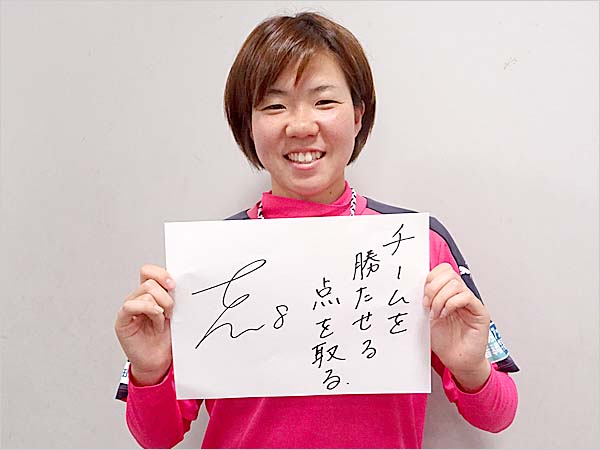 チームを
勝たせる
点を取る.
8